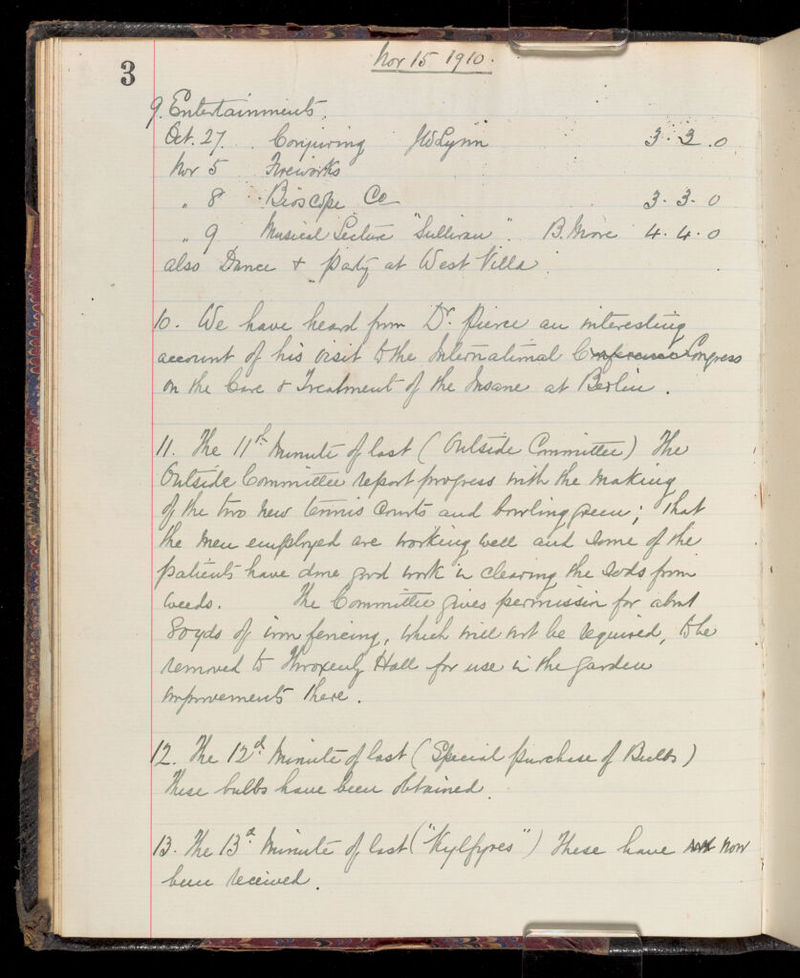 3
Nov 15 1910.
9. Entertainments.
Oct. 27. Conjuring JW Lynn 3. 3. 0
Nov 5 Fireworks
" 8 Bioscope Co 3. 3. 0
" 9 Musical Lecture "Sullivan". B. More 4. 4. 0
also Dance & Party at West Villa.
10. We have heard from Dr. Pierce an interesting
account of his visit to the International Conference Congress
on the Care & Treatment of the Insane at Berlin.
11. The 11th Minute of last (Outside Committee) The
Outside Committee report progress with the making
of the two new tennis courts and bowling green; that
the men employed are working well and some of the
patients have done good work in clearing the sods from
weeds. The Committee gives permission for about
80 yds of iron fencing, which will not be required, to be
removed to Hall for use in the garden
improvements there.
12. The 12th Minute of last (Special purchase of Bulbs)
These bulbs have been obtained.
13. The 13th Minute of last ("Kylfyres") These have not now
been received.